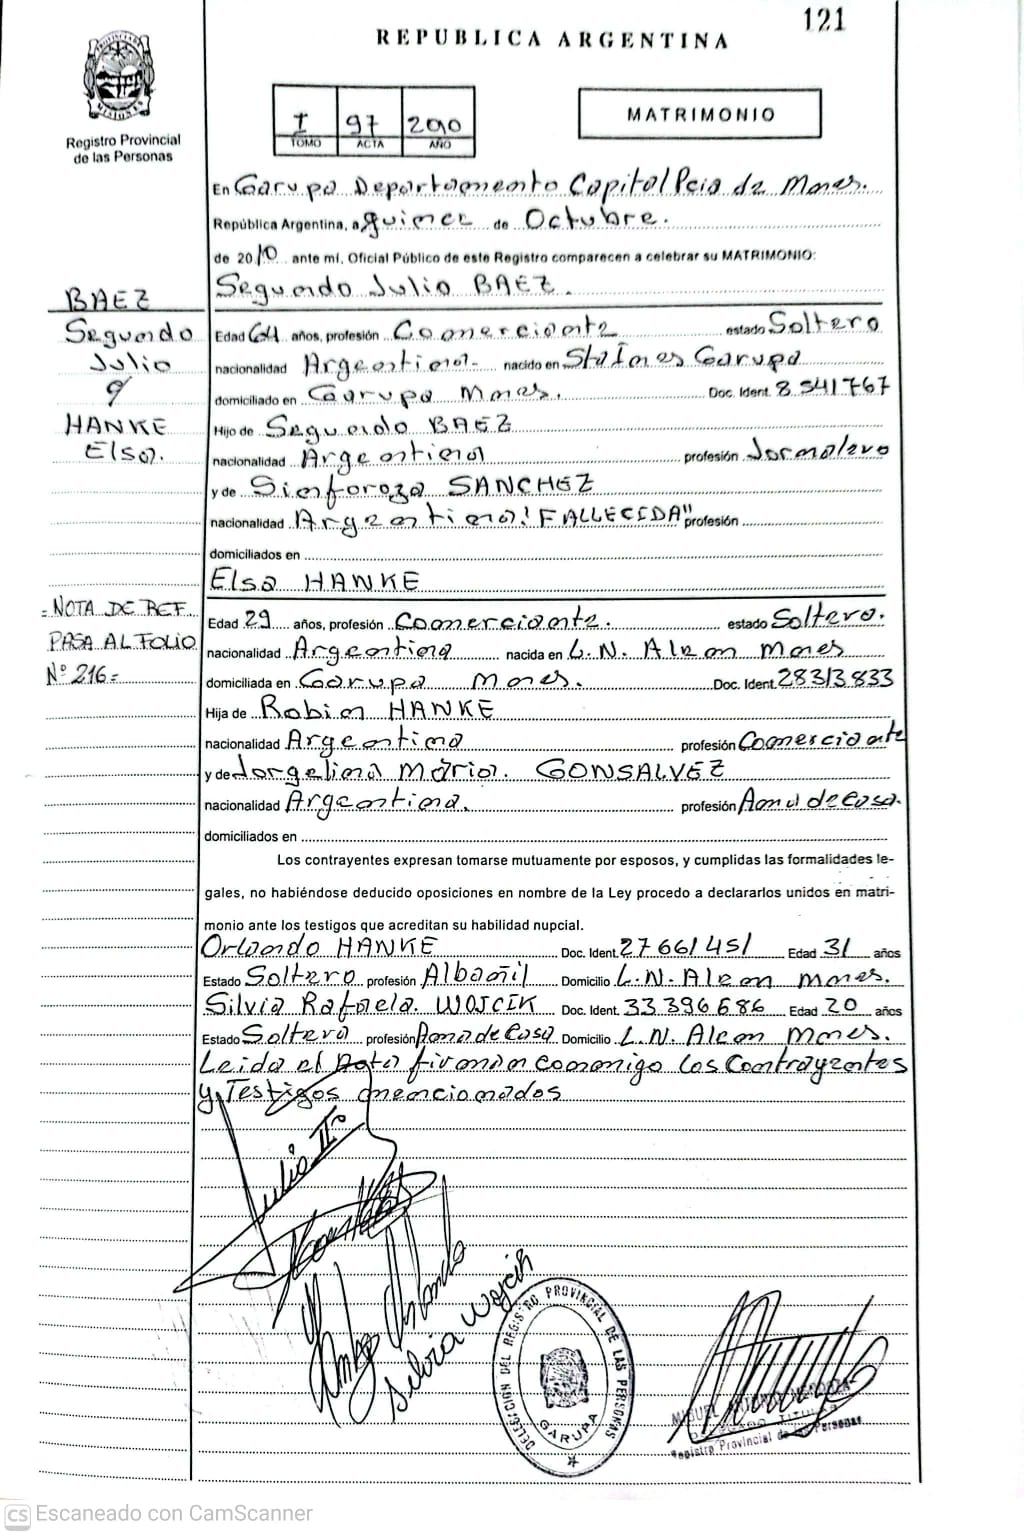 121
REPUBLICA ARGENTINA
PROVINCIA DE MISIONES
Registro Provincial
de las Personas
I 97 2010
TOMO ACTA AÑO
MATRIMONIO
En Garupa Departamento Capital Pcia de Mnes.
República Argentina, a quince de Octubre.
de 2010 ante mí, Oficial Público de este Registro comparecen a celebrar su MATRIMONIO:
Segundo Julio BAEZ.
BAEZ
Segundo
Julio
y
HANKE
Elsa.
Edad 64 años, profesión Comerciante estado Soltero
nacionalidad Argentina. nacido en Sta Ines Garupa
domiciliado en Garupa Mnes. Doc. Ident. 8.541767
Hijo de Segundo BAEZ
nacionalidad Argentina profesión Jornalero
y de Sinforoza SANCHEZ
nacionalidad Argentina "FALLECIDA" profesión
domiciliados en
Elsa HANKE
=NOTA DE REF.
PASA AL FOLIO
Nº 216=
Edad 29 años, profesión Comerciante. estado Soltera.
nacionalidad Argentina nacida en L.N. Alem Mnes
domiciliada en Garupa Mnes. Doc. Ident. 28313.833
Hija de Robin HANKE
nacionalidad Argentina profesión Comerciante
y de Jorgelina Maria. GONSALVEZ
nacionalidad Argentina. profesión Ama de Casa.
domiciliados en
Los contrayentes expresan tomarse mutuamente por esposos, y cumplidas las formalidades le-
gales, no habiéndose deducido oposiciones en nombre de la Ley procedo a declararlos unidos en matri-
monio ante los testigos que acreditan su habilidad nupcial.
Orlando HANKE Doc. Ident. 27661451 Edad 31 años
Estado Soltero profesión Albañil Domicilio L.N. Alem Mnes.
Silvia Rafaela. WOJCIK Doc. Ident. 33396686 Edad 20 años
Estado Soltera profesión Ama de Casa Domicilio L.N. Alem Mnes.
Leida el Acta firman conmigo los Contrayentes
y Testigos mencionados
Julio
Hanke Orlando
Silvia Wojcik
DELEGACION DEL REGISTRO PROVINCIAL DE LAS PERSONAS
GARUPA
MIGUEL ANTONIO MENDOZA
TITULAR
Registro Provincial de las Personas
CS Escaneado con CamScanner